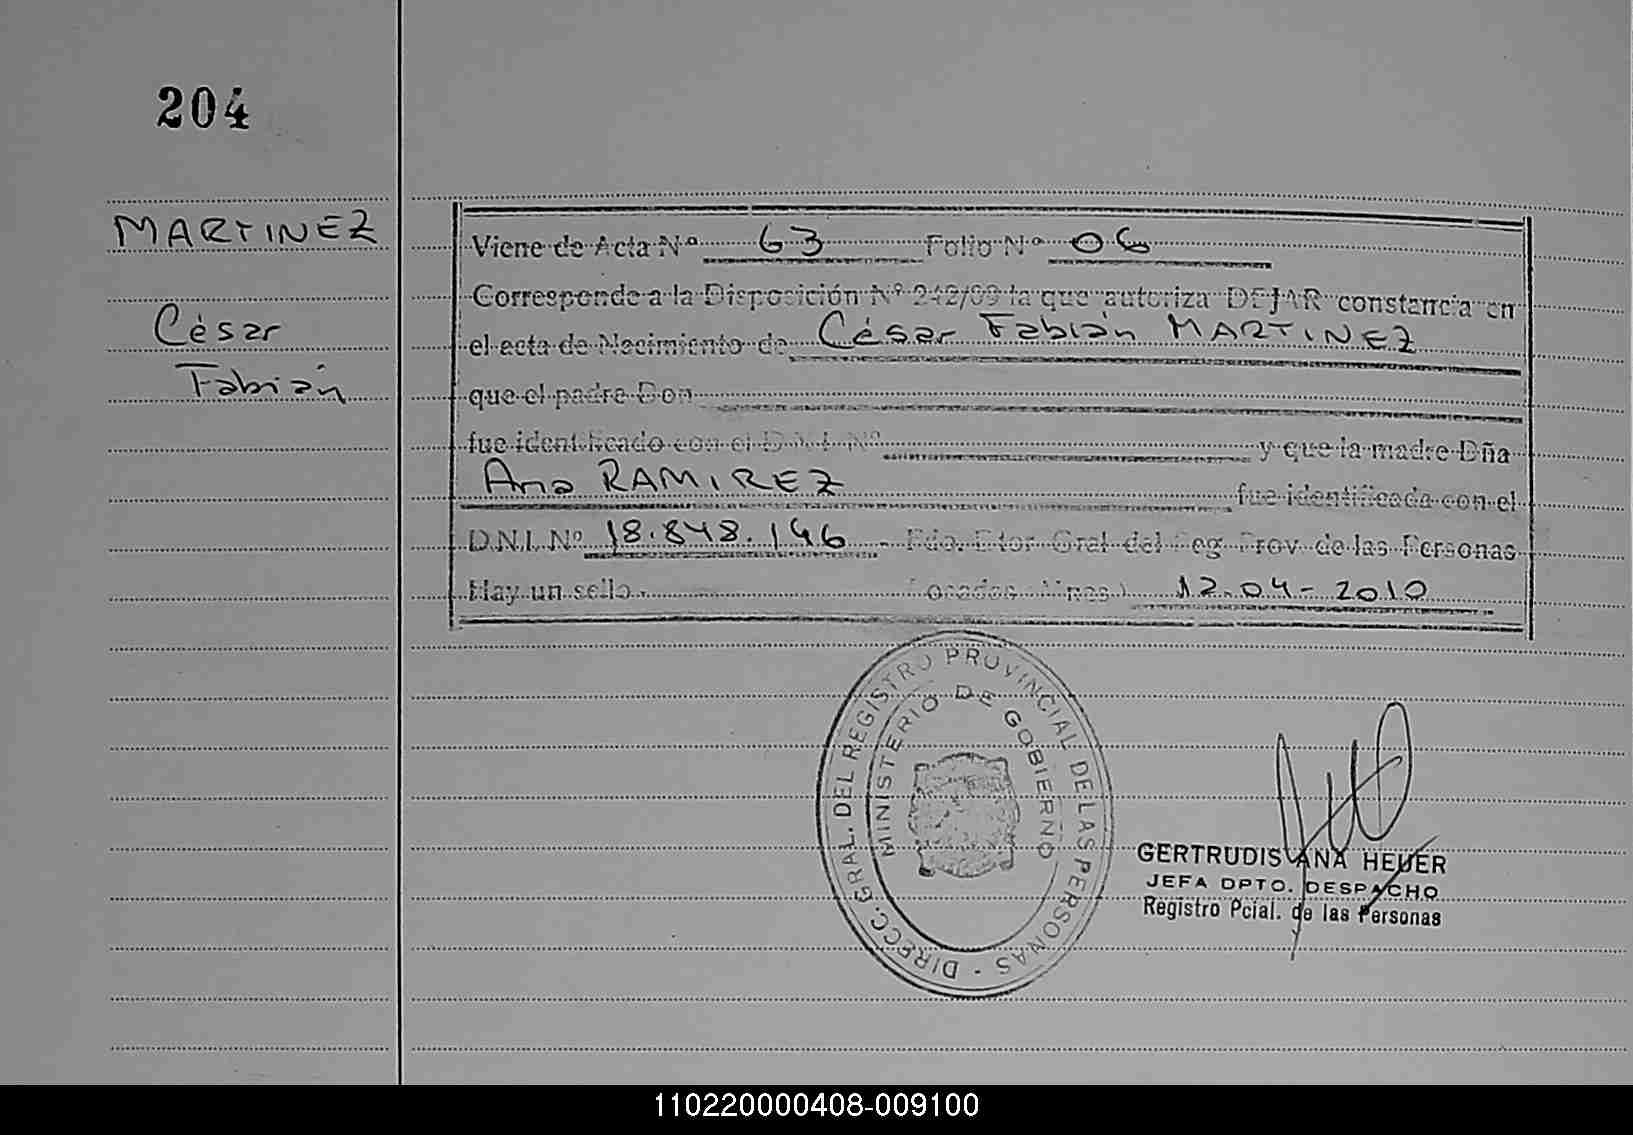 204
MARTINEZ
César
Fabián
Viene de Acta Nº 63 Folio Nº 06
Corresponde a la Disposición Nº 242/09 la que autoriza DEJAR constancia en
el acta de Nacimiento de César Fabián MARTINEZ
que el padre Don
fue identificado con el D.N.I. Nº y que la madre Dña
Ana RAMIREZ fue identificada con el
D.N.I. Nº 18.848.146 - Fdo. Dtor. Gral. del Reg. Prov. de las Personas
Hay un sello. Posadas Mnes) 12-04-2010
DIRECC. GRAL. DEL REGISTRO PROVINCIAL DE LAS PERSONAS -
MINISTERIO DE GOBIERNO
GERTRUDIS ANA HEUER
JEFA DPTO. DESPACHO
Registro Pcial. de las Personas
110220000408-009100